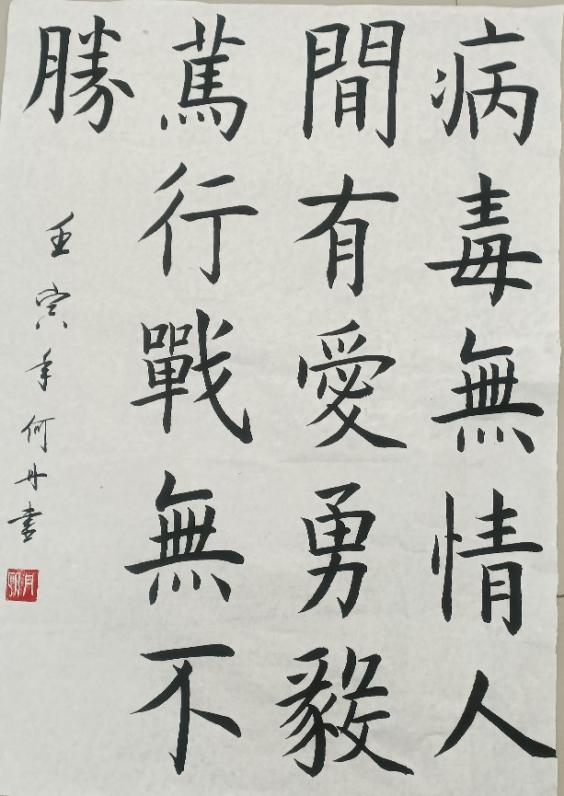 病毒無情人
間有愛勇毅
篤行戰無不
勝
壬寅年何丹書